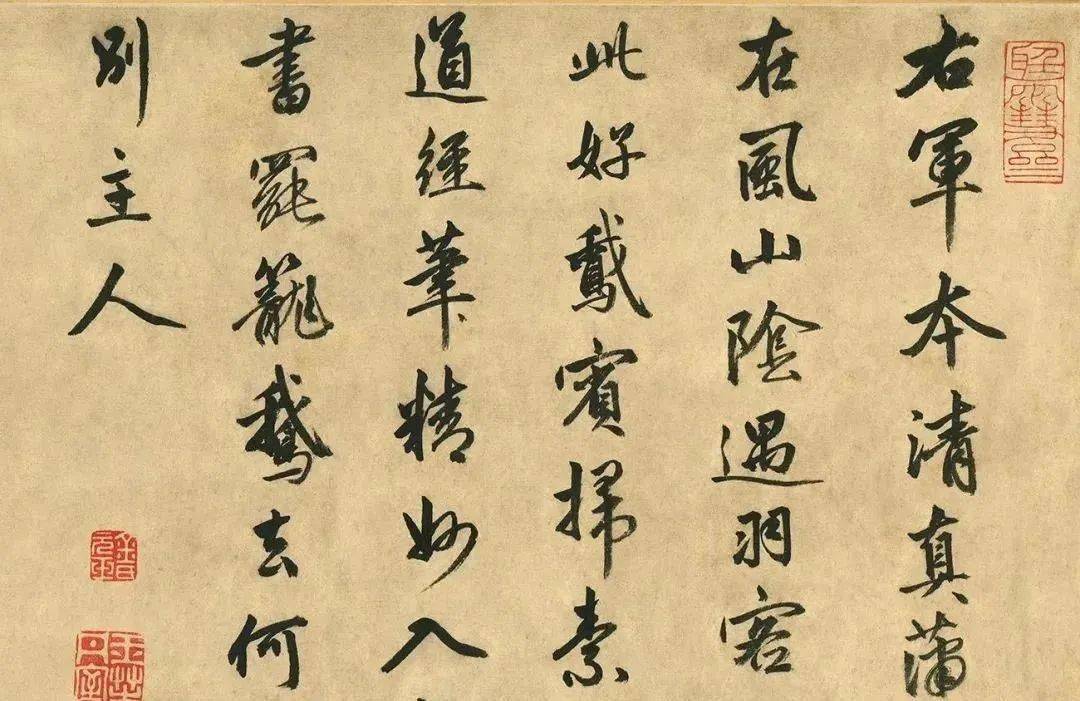 右軍本清真瀟
在風山陰遇羽客
此好鵞賓掃素
道經筆精妙入
書罷籠鵝去何
別主人